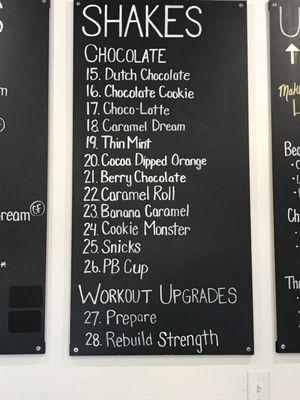 SHAKES
CHOCOLATE
15. Dutch Chocolate
16. Chocolate Cookie
17. Choco-Latte
18. Caramel Dream
19. Thin Mint
20. Cocoa Dipped Orange
21. Berry Chocolate
22. Caramel Roll
23. Banana Caramel
24. Cookie Monster
25. Snicks
26. PB Cup
WORKOUT UPGRADES
27. Prepare
28. Rebuild Strength